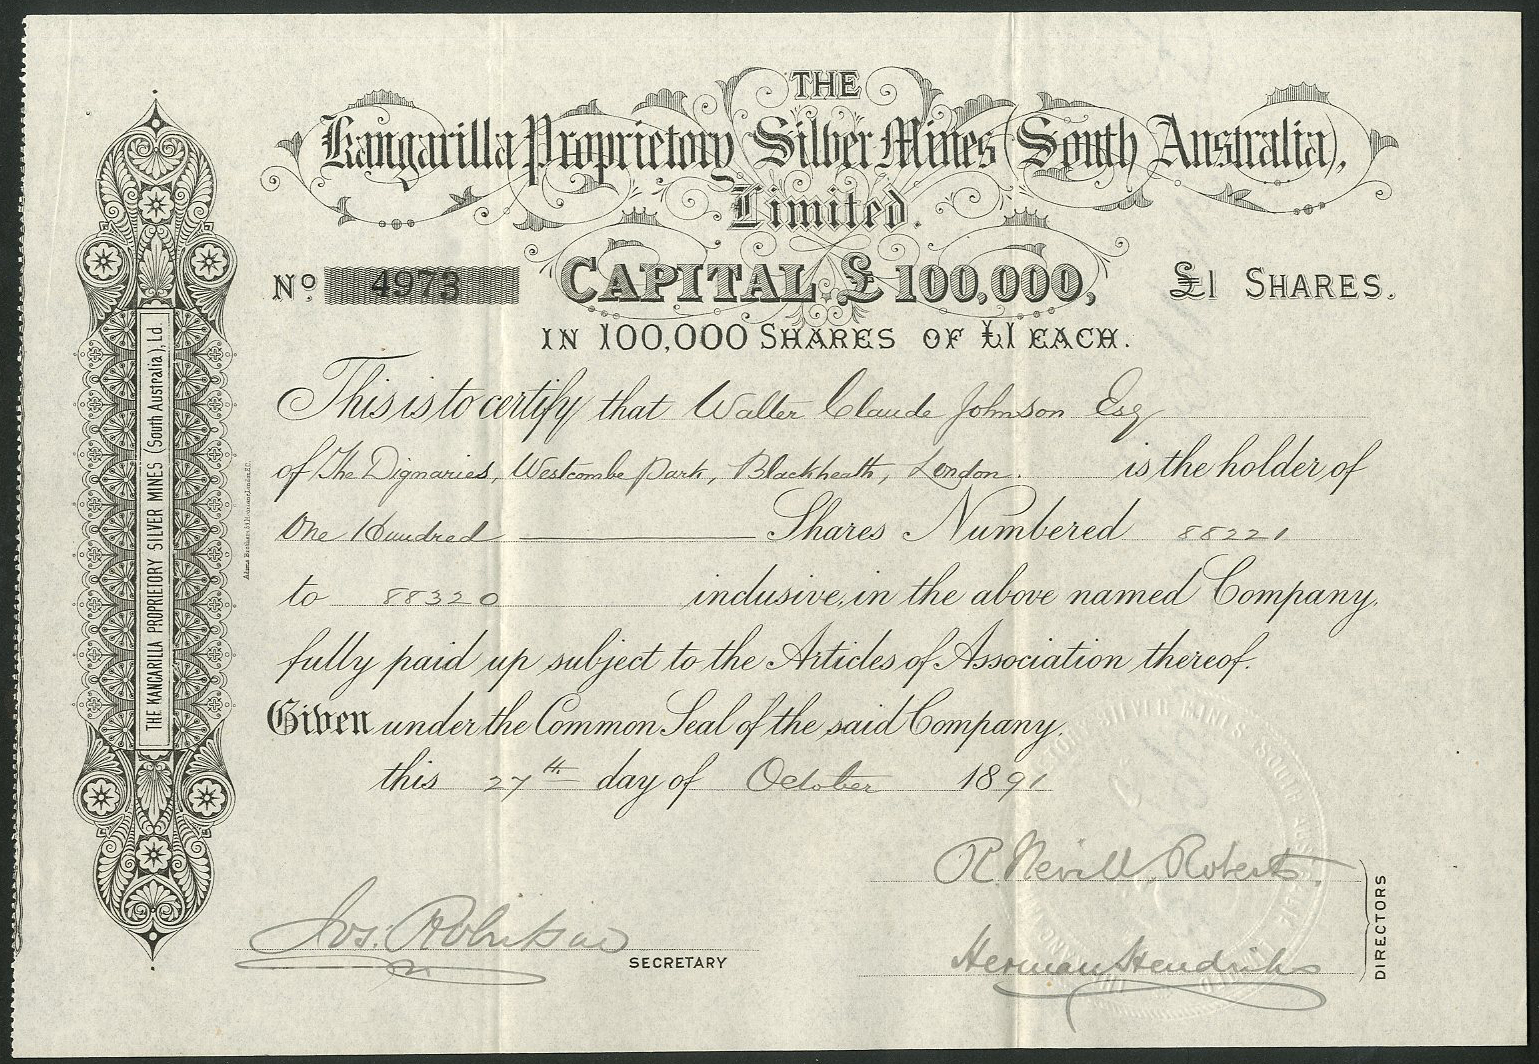 THE
Kangarilla Proprietory Silver Mines (South Australia),
Limited.
No. 4973
CAPITAL £100,000,
£1 SHARES.
IN 100,000 SHARES OF £1 EACH.
This is to certify that Walter Claude Johnson Esq
of The Dignaries, Westcombe Park, Blackheath, London. is the holder of
One Hundred Shares Numbered 88221
to 88320 inclusive, in the above named Company,
fully paid up subject to the Articles of Association thereof.
Given under the Common Seal of the said Company,
this 27th day of October 1891
R. Nevill Roberts.
Jos. Robinson
SECRETARY
Herman Hendriks
DIRECTORS
THE KANGARILLA PROPRIETORY SILVER MINES (South Australia), Ld.
SILVER MINES SOUTH